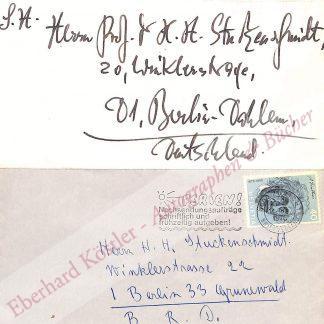 S. H.
Herrn Prof. Dr H. H. Stuckenschmidt,
20, Winklerstraße,
D1, Berlin-Dahlem,
Deutschland
FERIEN!
Nachsendungsaufträge
schriftlich und
frühzeitig aufgeben!
Herrn H. H. Stuckenschmidt.
Winklerstrasse 22
1 Berlin 33 Grunewald
B. R. D.
Eberhard Köstler - Autographen und Bücher